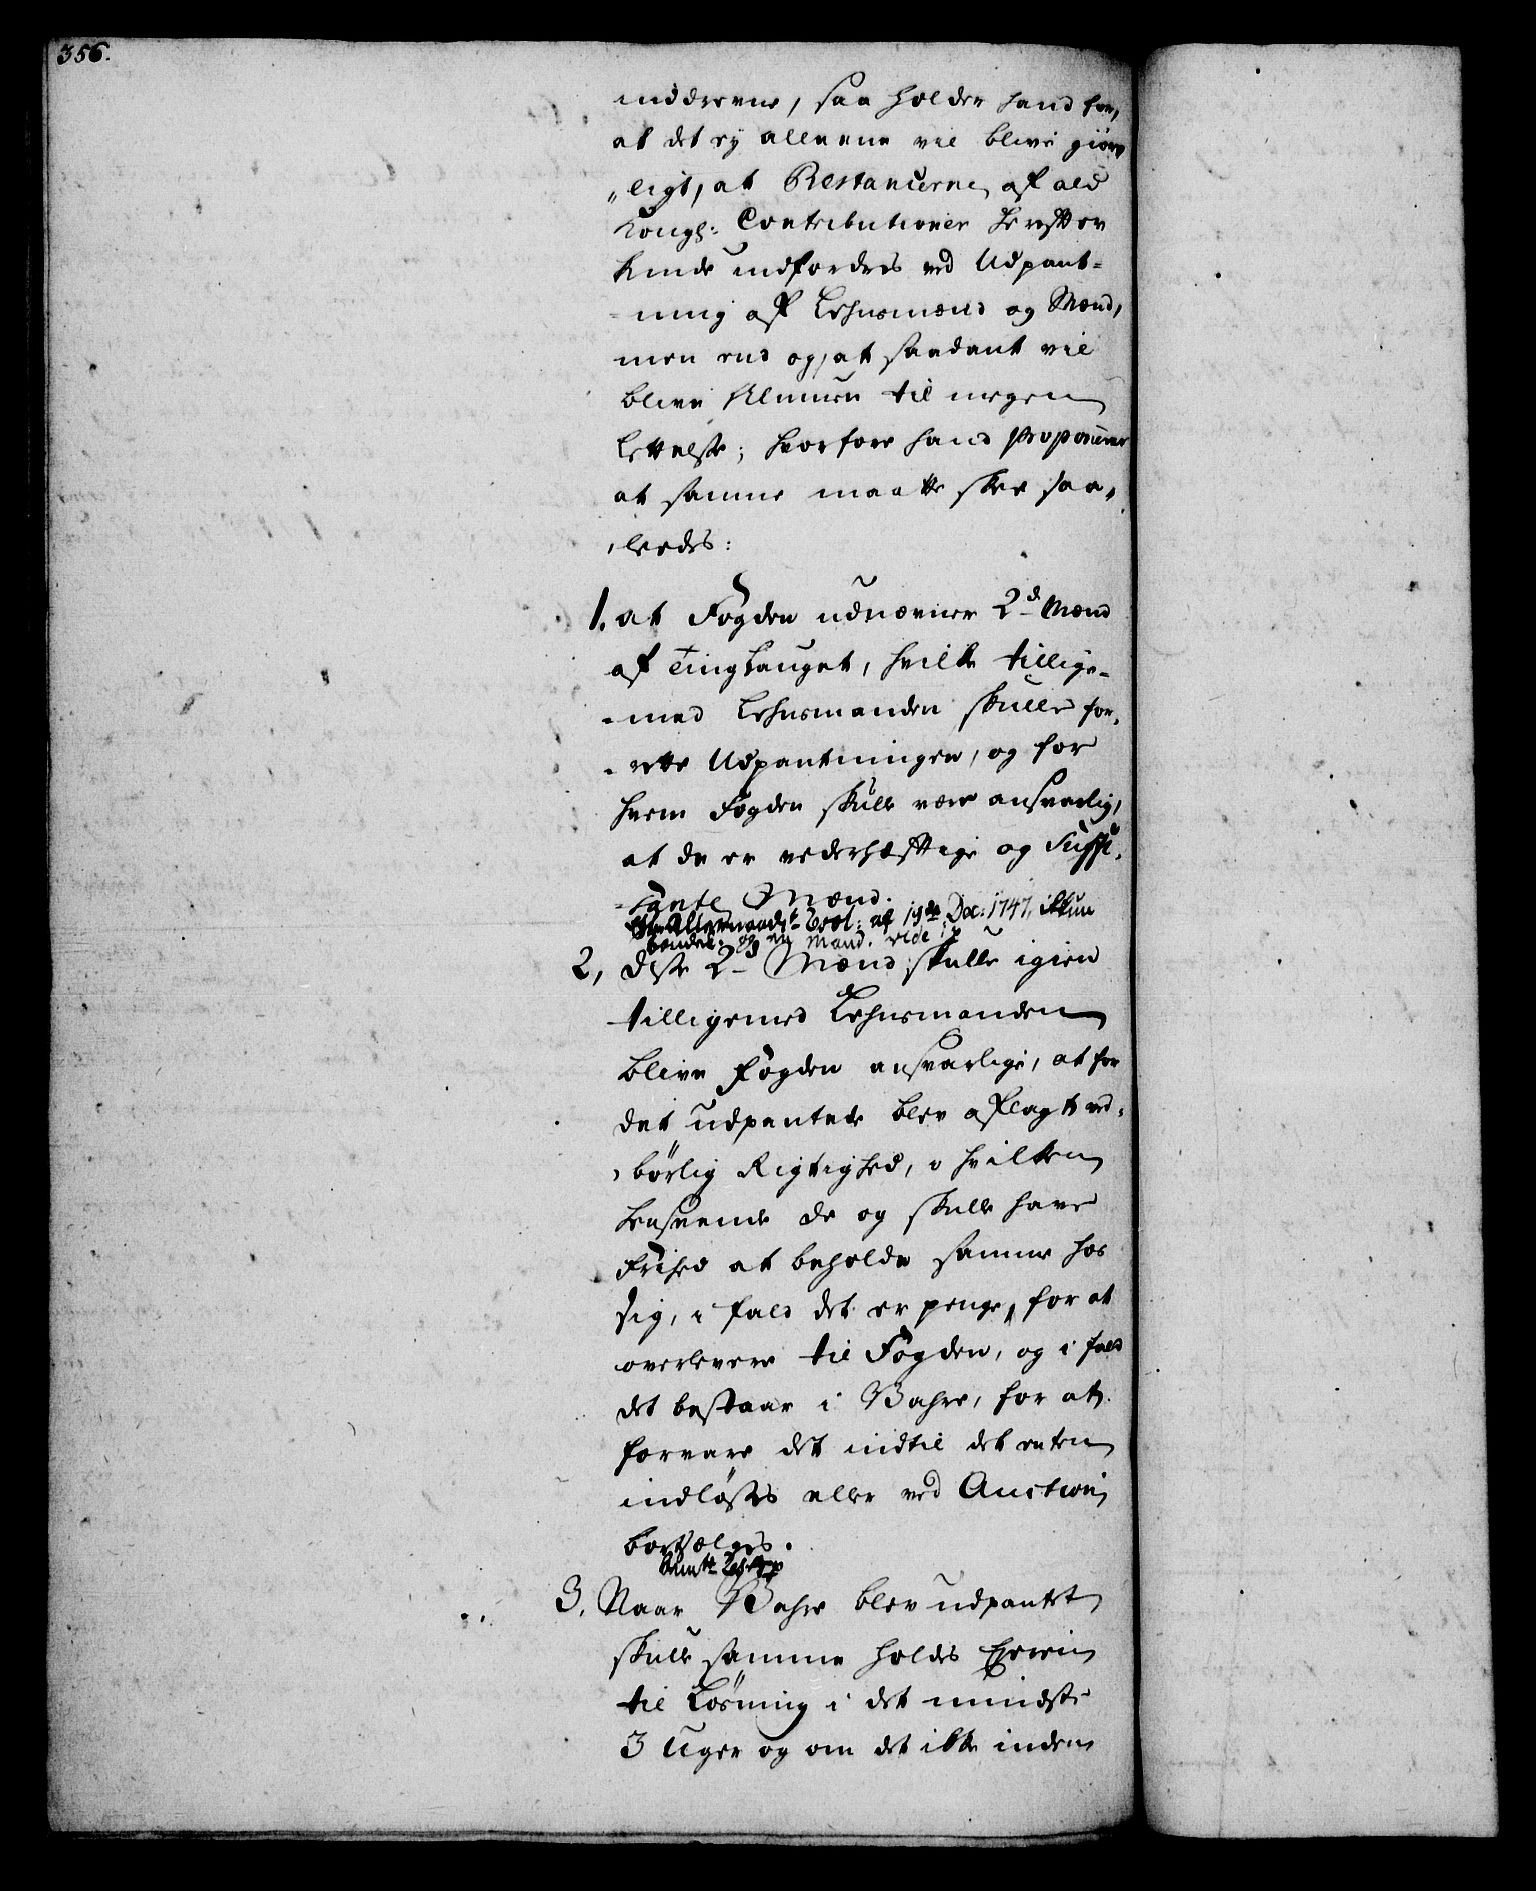 356.
inddrevne, saa holder hand for,
at det ey alleene vil blive giör-
„ligt, at Restancerne af ald
Kongl: Contributioner herefter
kunde indfordres ved Udpant-
-ning af Lehnsmænd og Mænd,
men end og, at saadant vil
blive Almuen til megen
Lettelse; hvorfore hand proponerer
at samme maatte skee saa„
„ledes:
1. at Fogden udnævner 2de Mænd
af Tinglauget, hvilke tillige-
-med Lehnsmanden skulle for-
-rette Udpantningen, og for
hvem Fogden skulle være ansvarlig,
at de er vederhæftige og Suffi-
-sante Mænd.
af 19de Dec: 1747,
og ny Mand. vide
2, disse 2de Mænd skulle igien
tilligemed Lehnsmanden
blive Fogden ansvarlige, at for
det udpantede blev aflagt ved-
-börlig Rigtighed, i hvilken
henseende de og skulle have
Frihed at beholde samme hos
sig, i fald det er penge, for at
overlevere til Fogden, og i fald
det bestaar i Vahre, for at
forvare det indtil det enten
indløses eller ved Auction
bortsælges.
3. Naar Vahre blev udpantet
skulle samme holdes Eieren
til Løsning i det mindste
3 Uger og om det ikke inden